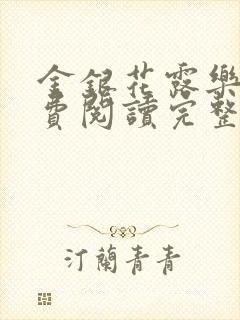 金銀花露樂
費閱讀完整
汀蘭青青